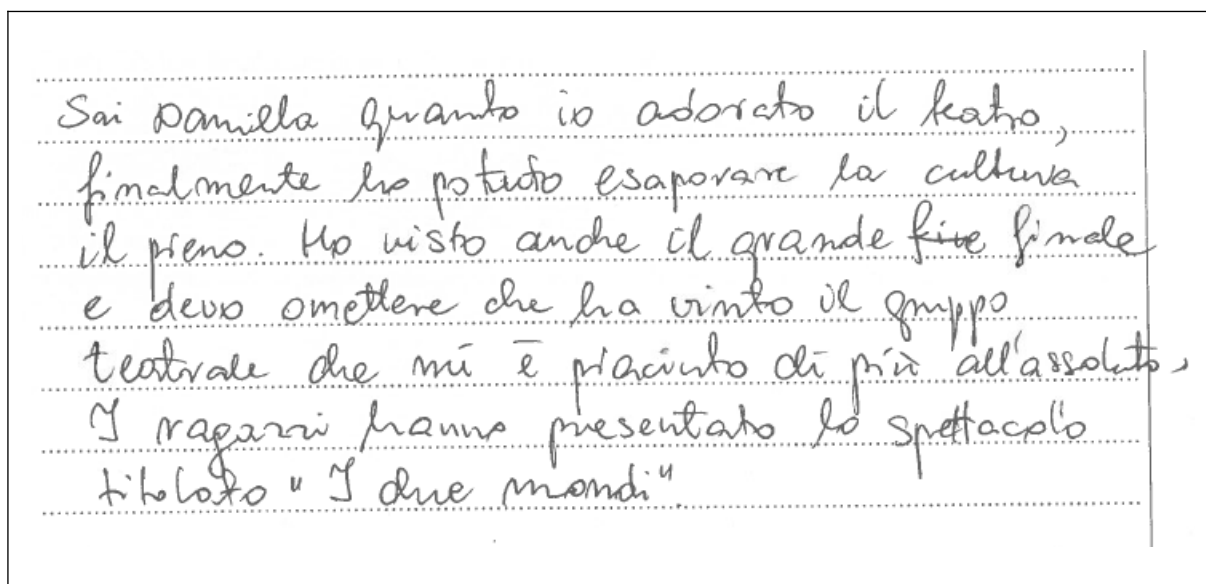 Sai Daniella quanto io adorato il teatro,
finalmente ho potuto esaporare la cultura
il pieno. Ho visto anche il grande fine finale
e devo omettere che ha vinto il gruppo
teatrale che mi è piaciuto di più all'assoluto,
I ragazzi hanno presentato lo spettacolo
titoloto "I due mondi".